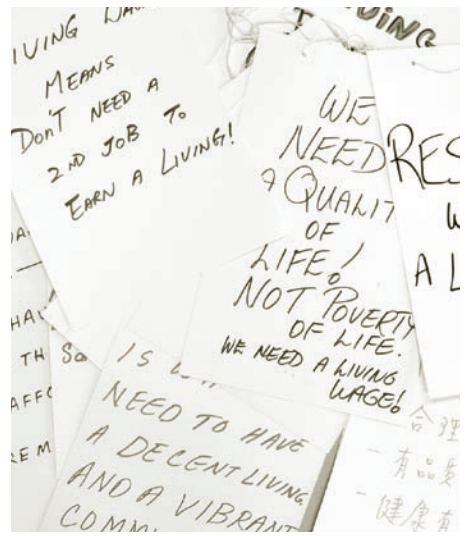 IVING
MEANS
DON'T NEED A
2ND JOB TO
EARN A LIVING!
WE
NEED
A QUALIT
OF
LIFE!
NOT POVERTY
OF LIFE.
WE NEED A LIVING
WAGE!
RES
W
A L
IS
NEED TO HAVE
A DECENT LIVING
AND A VIBRANT
COMM
TH
AFFO
EM
合理
- 有品質
- 健康有